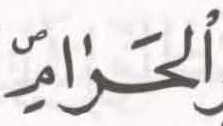 ألحَرَامِ